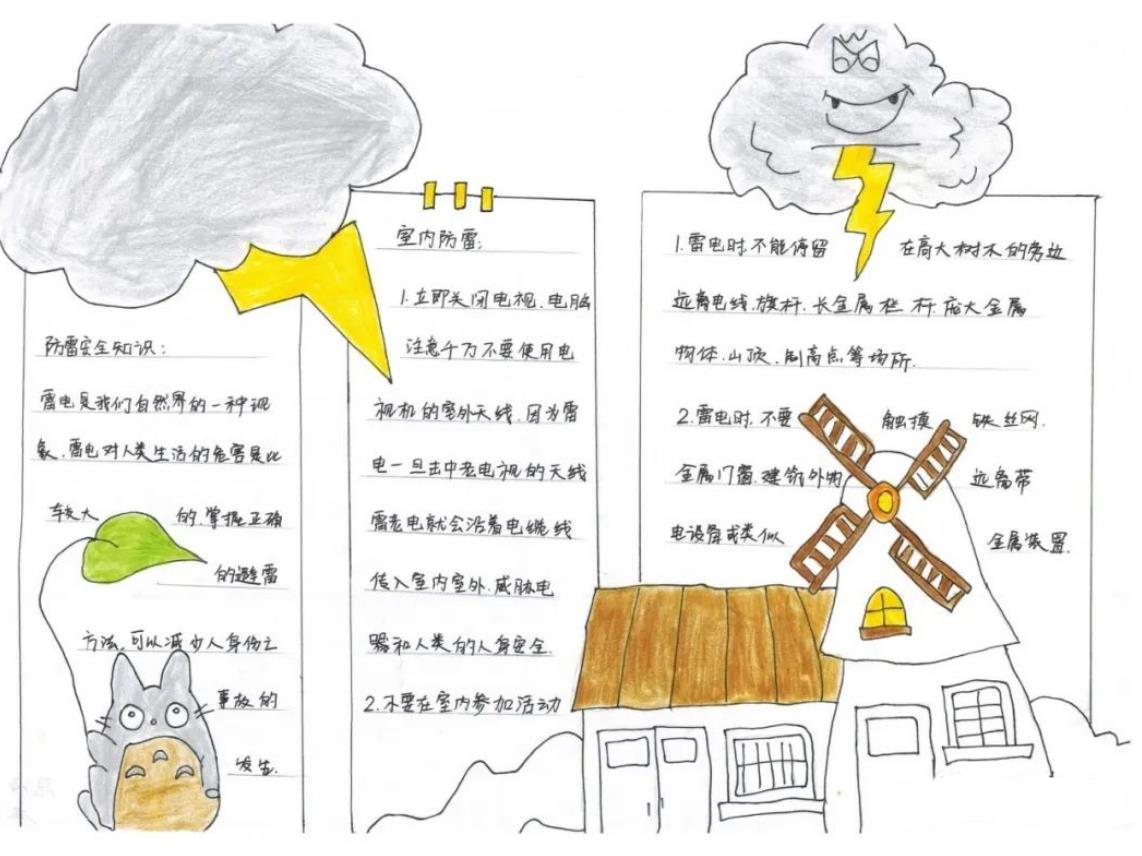 防雷安全知识：
雷电是我们自然界的一种现
象、雷电对人类生活的危害是比
较大的.掌握正确
的避雷
方法,可以减少人身伤亡
事故的
发生.
室内防雷:
1.立即关闭电视、电脑
注意千万不要使用电
视机的室外天线、因为雷
电一旦击中老电视的天线
雷老电就会沿着电缆线
传入室内室外.威胁电
器和人类的人身安全.
2.不要在室内参加活动
1.雷电时,不能停留 在高大树木的旁边
远离电线、旗杆、长金属栏杆、庞大金属
物体、山顶、制高点等场所.
2.雷电时、不要 触摸 铁丝网.
金属门窗、建筑外 远离带
电设备或类似 金属装置.